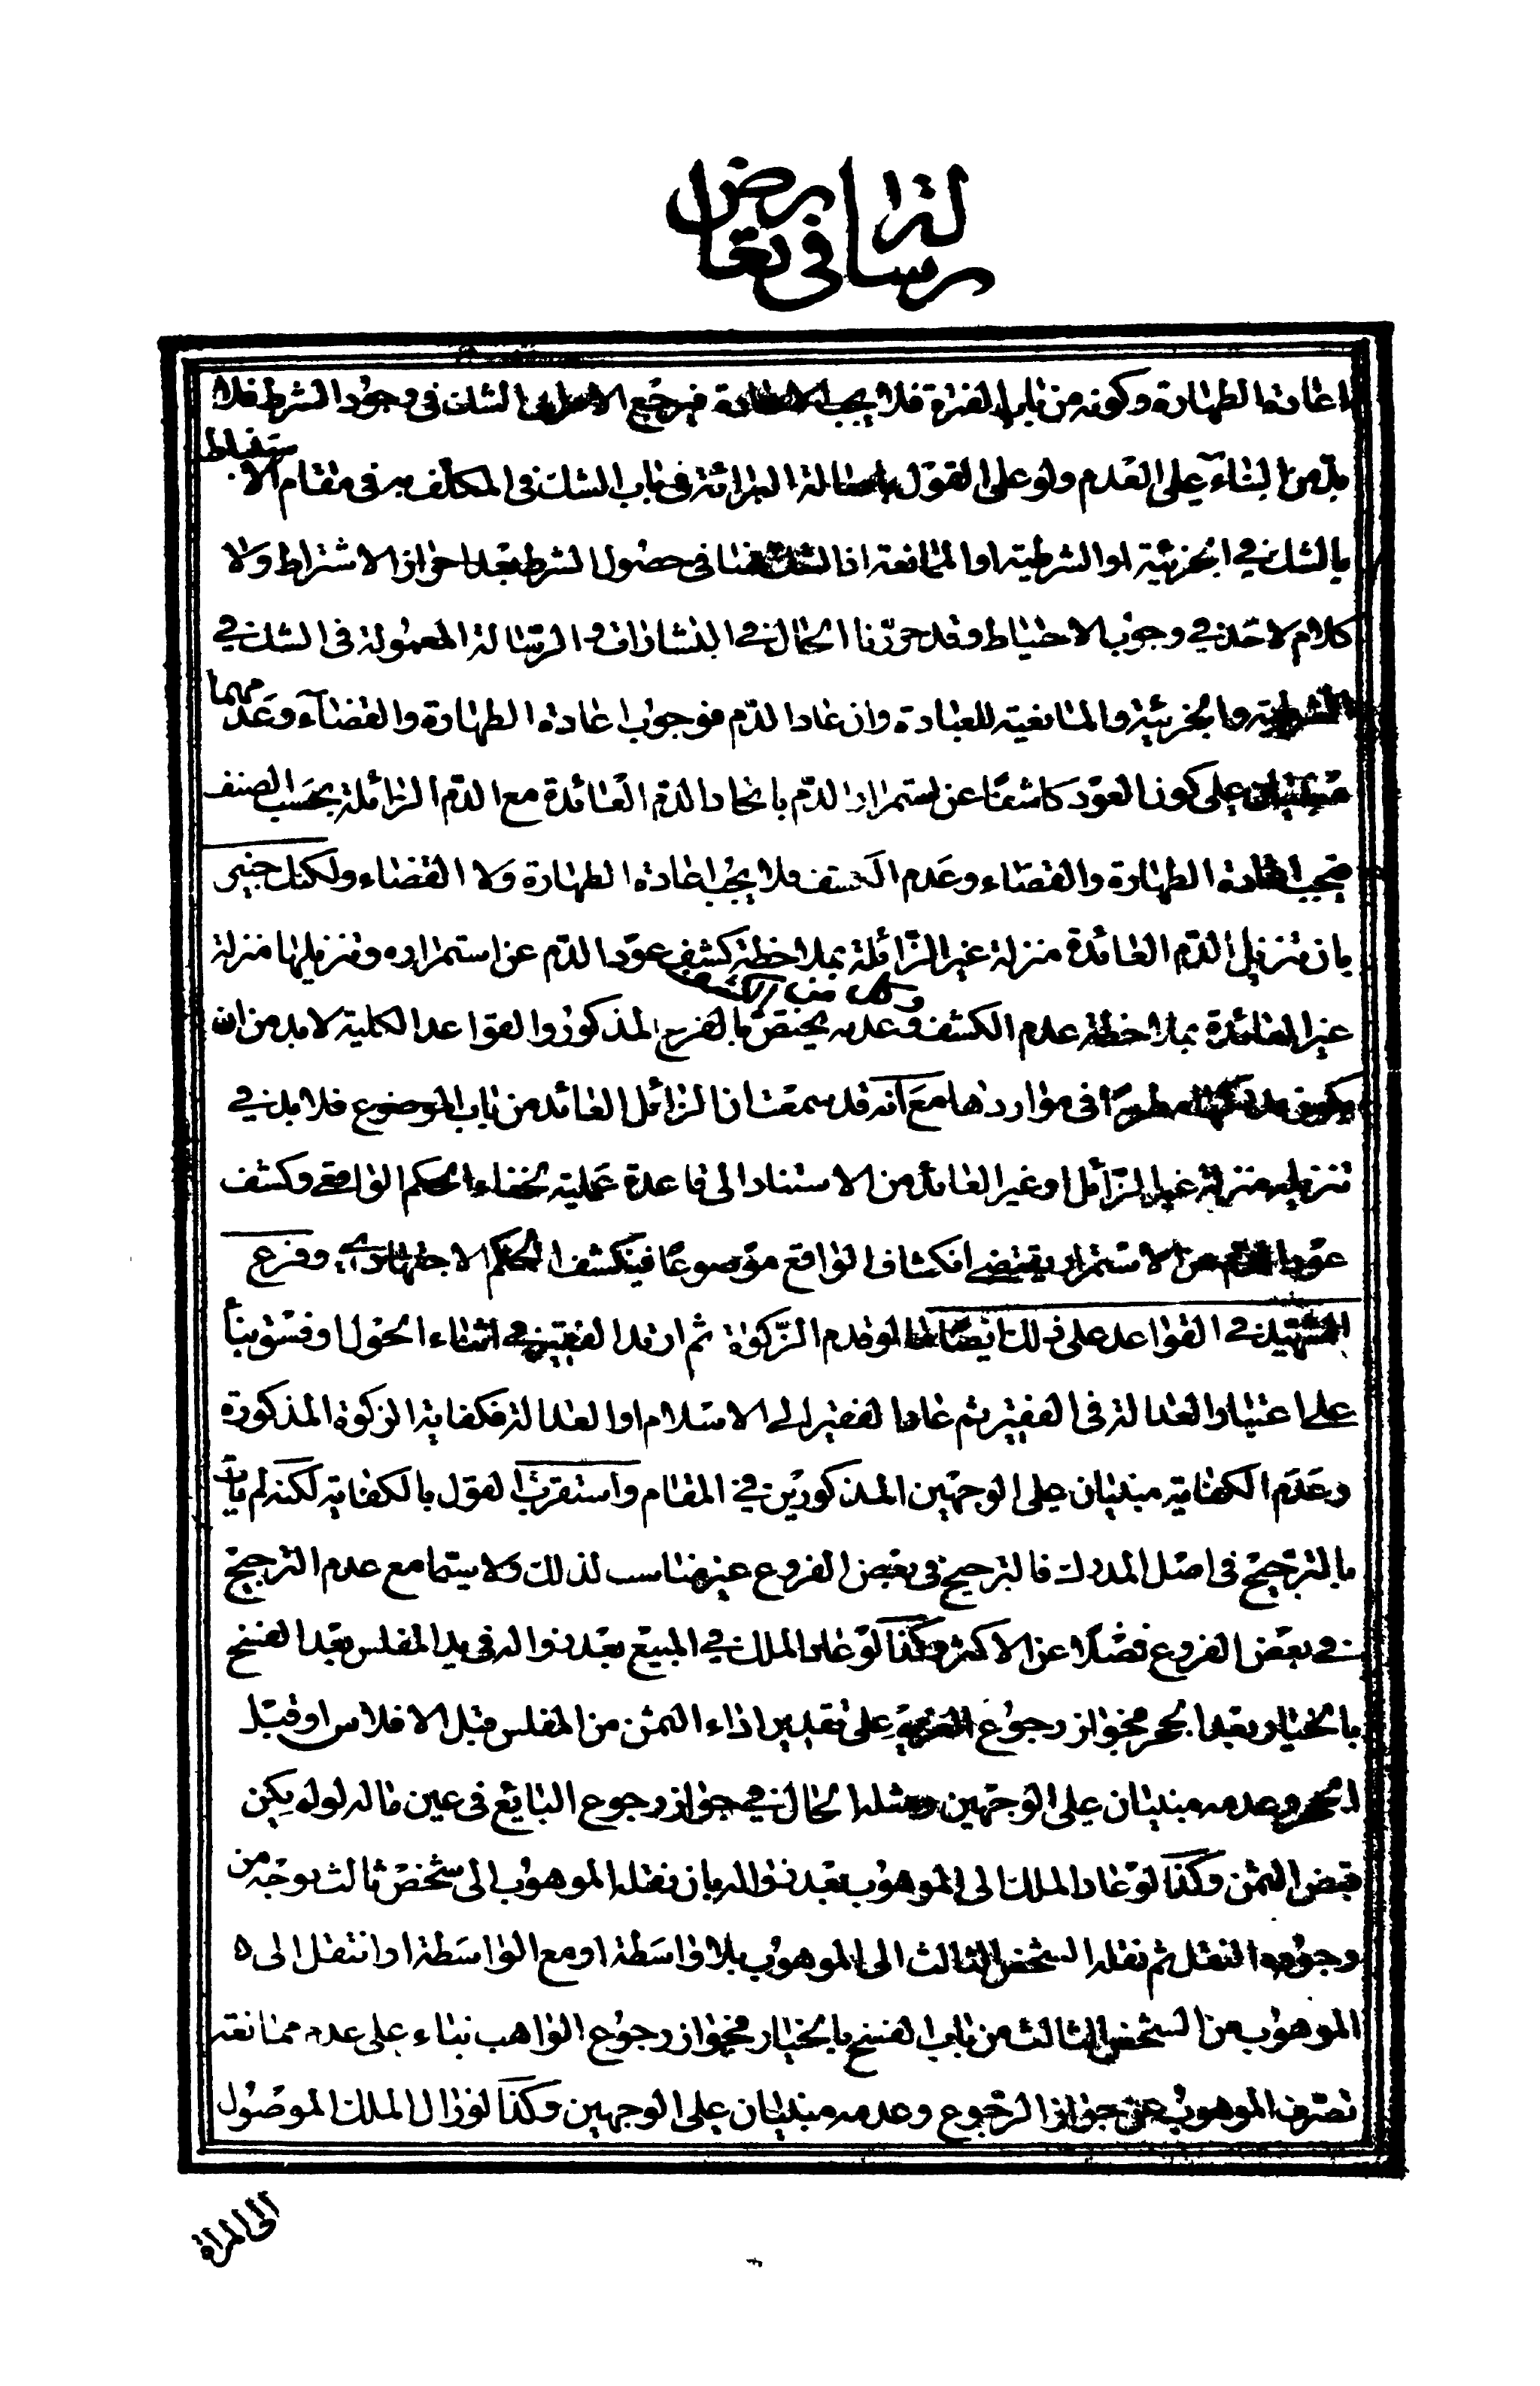 رسالة في تعارض ال
اعادة الطهارة وكونه من باب الفترة فلا يجب الاعادة فيرجع الامر الى الشك فى وجود الشرط فلا
بدّ من البناء على العدم ولو على القول باصالة البرائة فى باب الشك فى المكلّف به فى مقام الاستنباط
بالشك في الجزئية او الشرطية او المانعة اذ الشك هنا فى حصول الشرط بعد احراز الاشتراط ولا
كلام لاحد في وجوب الاحتياط وقد حرّرنا الحال في البشارات و الرّسالة المعمولة فى الشك في
الشرطية والجزئية والمانعية للعبادة وان عاد الدّم فوجوب اعادة الطهارة والقضاء وعدمهما
مبنيّان على كون العود كاشفًا عن استمرار الدّم باتحاد الدّم العائدة مع الدّم الزائلة بحسب الصنف
فيجب اعادة الطهارة والقضاء وعدم الكشف فلا يجب اعادة الطهارة ولا القضاء ولكنك خبير
بان تنزيل الدّم العائدة منزلة غير الزّائلة بملاحظة كشف عود الدّم عن استمراره وتنزيلها منزلة
غير العائدة بملاحظة عدم الكشف وكل من الكشف وعدمه يختص بالفرع المذكور والقواعد الكلية لا بد من ان
يكون مدركها مطردًا فى مواردها مع انه قد سمعت ان الزائل العائد من باب الموضوع فلا بد في
تنزيله منزلة غير الزّائل او غير العائد من الاستناد الى قاعدة عملية لخفاء الحكم الواقعي وكشف
عود الدّم عن الاستمرار يقتضي انكشاف الواقع موضوعًا فينكشف الحكم الاجتهادي وفرع
الشهيد في القواعد على ذلك ايضًا ما لو قدم الزّكوة ثم ارتد الفقير في اثناء الحول او فسق بنأ
على اعتبار العدالة فى الفقير ثم عاد الفقير الى الاسلام او العدالة فكفاية الزكوة المذكورة
وعدم الكفاية مبنيان على الوجهين المذكورين في المقام واستقرب القول بالكفاية لكنه لم يأت
بالترجيح فى اصل المدرك فالترجيح فى بعض الفروع غير مناسب لذلك ولا سيّما مع عدم الترجيح
في بعض الفروع فضلًا عن الاكثر وكذا لو عاد الملك في المبيع بعد زواله فى يد المفلس بعد الفسخ
بالخيار بعد الحجر فجواز رجوع الغريم على تقدير اداء الثمن من المفلس قبل الافلاس او قبل
الحجر وعدمه مبنيان على الوجهين ومثله الحال في جواز رجوع البايع فى عين ماله لو لم يكن
قبض الثمن وكذا لو عاد الملك الى الموهوب بعد زواله بان نقله الموهوب الى شخص ثالث بوجه من
وجوه النقل ثم نقله الشخص الثالث الى الموهوب بلا واسطة او مع الواسطة او انتقل الى
الموهوب من الشخص الثالث من باب الفسخ بالخيار فجواز رجوع الواهب بناء على عدم ممانعة
تصرّف الموهوب عن جواز الرّجوع وعدمه مبنيان على الوجهين وكذا لو زال الملك الموصول
الى المراة